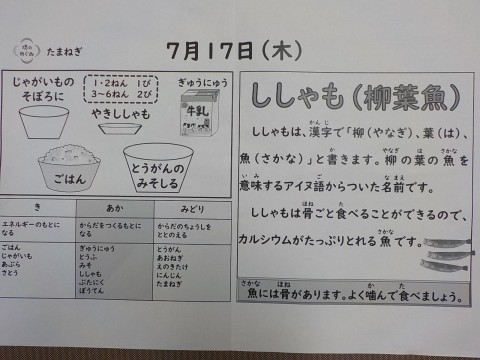 堺の
めぐみ
たまねぎ
7月17日(木)
じゃがいもの
そぼろに
1・2ねん 1び
3~6ねん 2び
ぎゅうにゅう
牛乳
やきししゃも
ごはん
とうがんの
みそしる
き
あか
みどり
エネルギーのもとに
なる
からだをつくるもとに
なる
からだのちょうしを
ととのえる
ごはん
じゃがいも
あぶら
さとう
ぎゅうにゅう
とうふ
みそ
ししゃも
ぶたにく
ぼうてん
とうがん
あおねぎ
えのきたけ
にんじん
たまねぎ
ししゃも(柳葉魚)
ししゃもは、漢字で「柳(やなぎ)、葉(は)、
魚(さかな)」と書きます。柳の葉の魚を
意味するアイヌ語からついた名前です。
ししゃもは骨ごと食べることができるので、
カルシウムがたっぷりとれる魚です。
魚には骨があります。よく噛んで食べましょう。